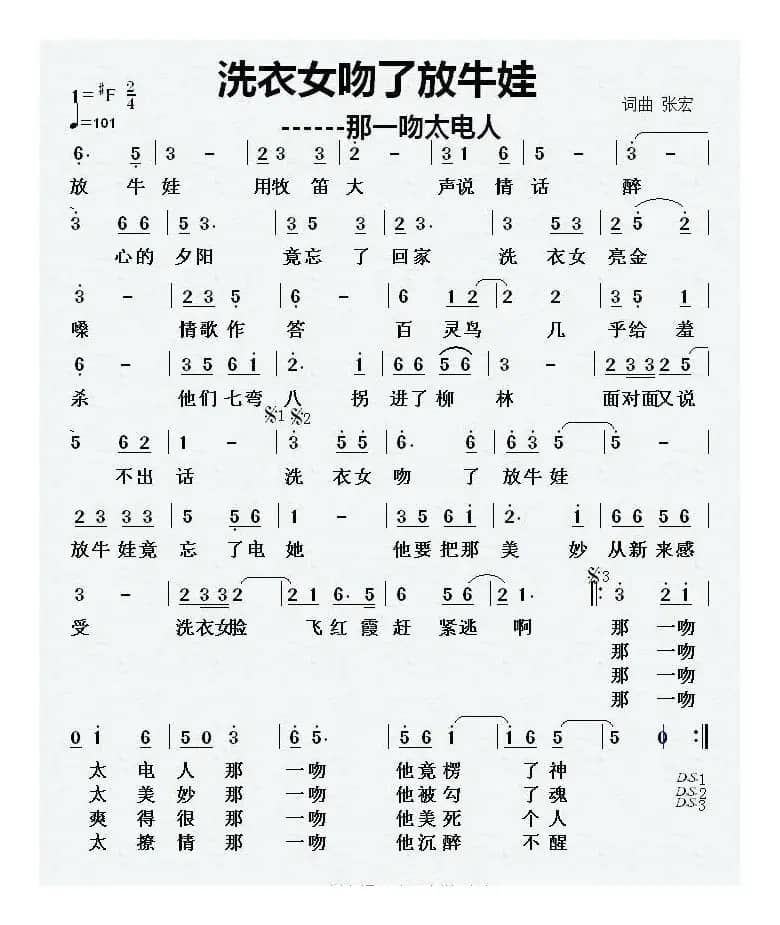 洗衣女吻了放牛娃
1=#F 2/4
♩=101
词曲 张宏
------那一吻太电人
6· 5 | 3 - | 2 3 3 3 | 2 - | 3 1 6 | 5 - | 3 -
放 牛 娃 用牧 笛 大 声说 情 话 醉
3 6 6 | 5 3· | 3 5 3 | 2 3· | 3 5 3 | 2 5 2
心的 夕阳 竟忘 了 回家 洗 衣女 亮金
3 - | 2 3 5 | 6 - | 6 1 2 | 2 2 | 3 5 1
嗓 情歌 作 答 百 灵鸟 几 乎给 羞
6 - | 3 5 6 1 | 2· 1 | 6 6 5 6 | 3 - | 2 3 3 2 5
杀 他们 七弯 八 拐 进了 柳 林 面对面又说
𝄋1 𝄋2
5 6 2 | 1 - | 3 5 5 | 6· 6 | 6 3 5 | 5 -
不出 话 洗 衣女 吻 了 放牛娃
2 3 3 3 | 5 5 6 | 1 - | 3 5 6 1 | 2· 1 | 6 6 5 6
放牛 娃竟 忘 了电 她 他要 把那 美 妙 从新 来感
𝄋3
3 - | 2 3 3 2 | 2 1 6· 5 | 6 5 6 | 2 1· ‖: 3 2 1
受 洗衣女脸 飞 红 霞 赶 紧逃 啊 那 一吻
那 一吻
那 一吻
那 一吻
0 1 6 | 5 0 3 | 6 5· | 5 6 1 | 1 6 5 | 5 0 :‖
太 电 人 那 一吻 他竟 楞 了 神
太 美 妙 那 一吻 他被 勾 了 魂
爽 得 很 那 一吻 他美 死 个 人
太 撩 情 那 一吻 他沉 醉 不 醒
D.S.1
D.S.2
D.S.3